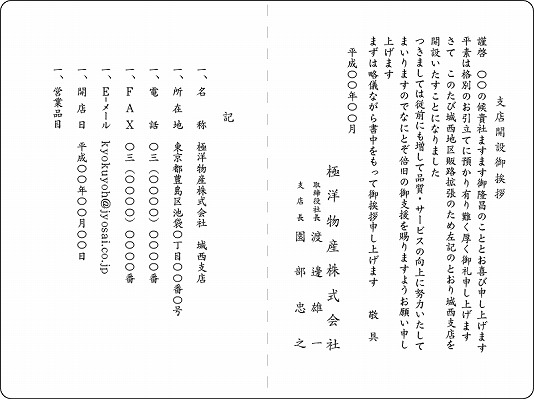 支店開設御挨拶
謹啓　〇〇の候貴社ますます御隆昌のこととお喜び申し上げます
平素は格別のお引立てに預かり有り難く厚く御礼申し上げます
さて　このたび城西地区販路拡張のため左記のとおり城西支店を
開設いたすことになりました
つきましては従前にも増して品質・サービスの向上に努力いたして
まいりますのでなにとぞ倍旧の御支援を賜りますようお願い申し
上げます
まずは略儀ながら書中をもって御挨拶申し上げます　敬具
平成〇〇年〇〇月
極洋物産株式会社
取締役社長　渡邊雄一
支店長　園部忠之
記
一、名称　極洋物産株式会社　城西支店
一、所在地　東京都豊島区池袋〇丁目〇〇番〇号
一、電話　〇三（〇〇〇〇）〇〇〇〇番
一、FAX　〇三（〇〇〇〇）〇〇〇〇番
一、E-メール　kyokuyoh@jyosai.co.jp
一、開店日　平成〇〇年〇〇月〇〇日
一、営業品目